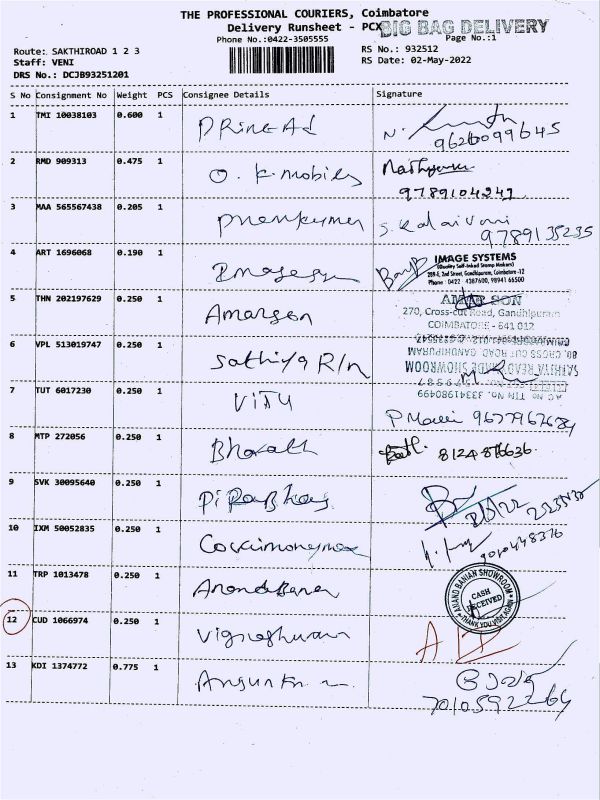 THE PROFESSIONAL COURIERS, Coimbatore
Delivery Runsheet - PCX BIG BAG DELIVERY
Phone No.:0422-3505555 Page No.:1
Route: SAKTHIROAD 1 2 3 RS No.: 932512
Staff: VENI RS Date: 02-May-2022
DRS No.: DCJB93251201
S No Consignment No Weight PCS Consignee Details Signature
1 TMI 10038103 0.600 1 N. 9626099645
2 RMD 909313 0.475 1 O. K. mobiles 9789104241
3 MAA 565567438 0.205 1 Premkumar S. Kalaivani 9789135235
4 ART 1696068 0.190 1 IMAGE SYSTEMS
(Quality Self-Inked Stamp Makers)
289-I, 2nd Street, Gandhipuram, Coimbatore -12
Phone : 0422 - 4387600, 98941 66500
5 THN 202197629 0.250 1 Amarson AMAR SON
270, Cross-cut Road, Gandhipuram
COIMBATORE - 641 012
6 VPL 513019747 0.250 1 Sathiya R/m
SATHIYA READYMADE SHOWROOM
80, CROSS CUT ROAD, GANDHIPURAM
7 TUT 6017230 0.250 1 VIJU
TIN No. 33341980499
8 MTP 272056 0.250 1 Bharath 8124876636
9 SVK 30095640 0.250 1
10 IXM 50052835 0.250 1
11 TRP 1013478 0.250 1 Anand Banian ANAND BANIAN SHOWROOM
CASH RECEIVED
THANK YOU VISIT AGAIN
12 CUD 1066974 0.250 1 Vigneshwara
13 KDI 1374772 0.775 1 7010592264